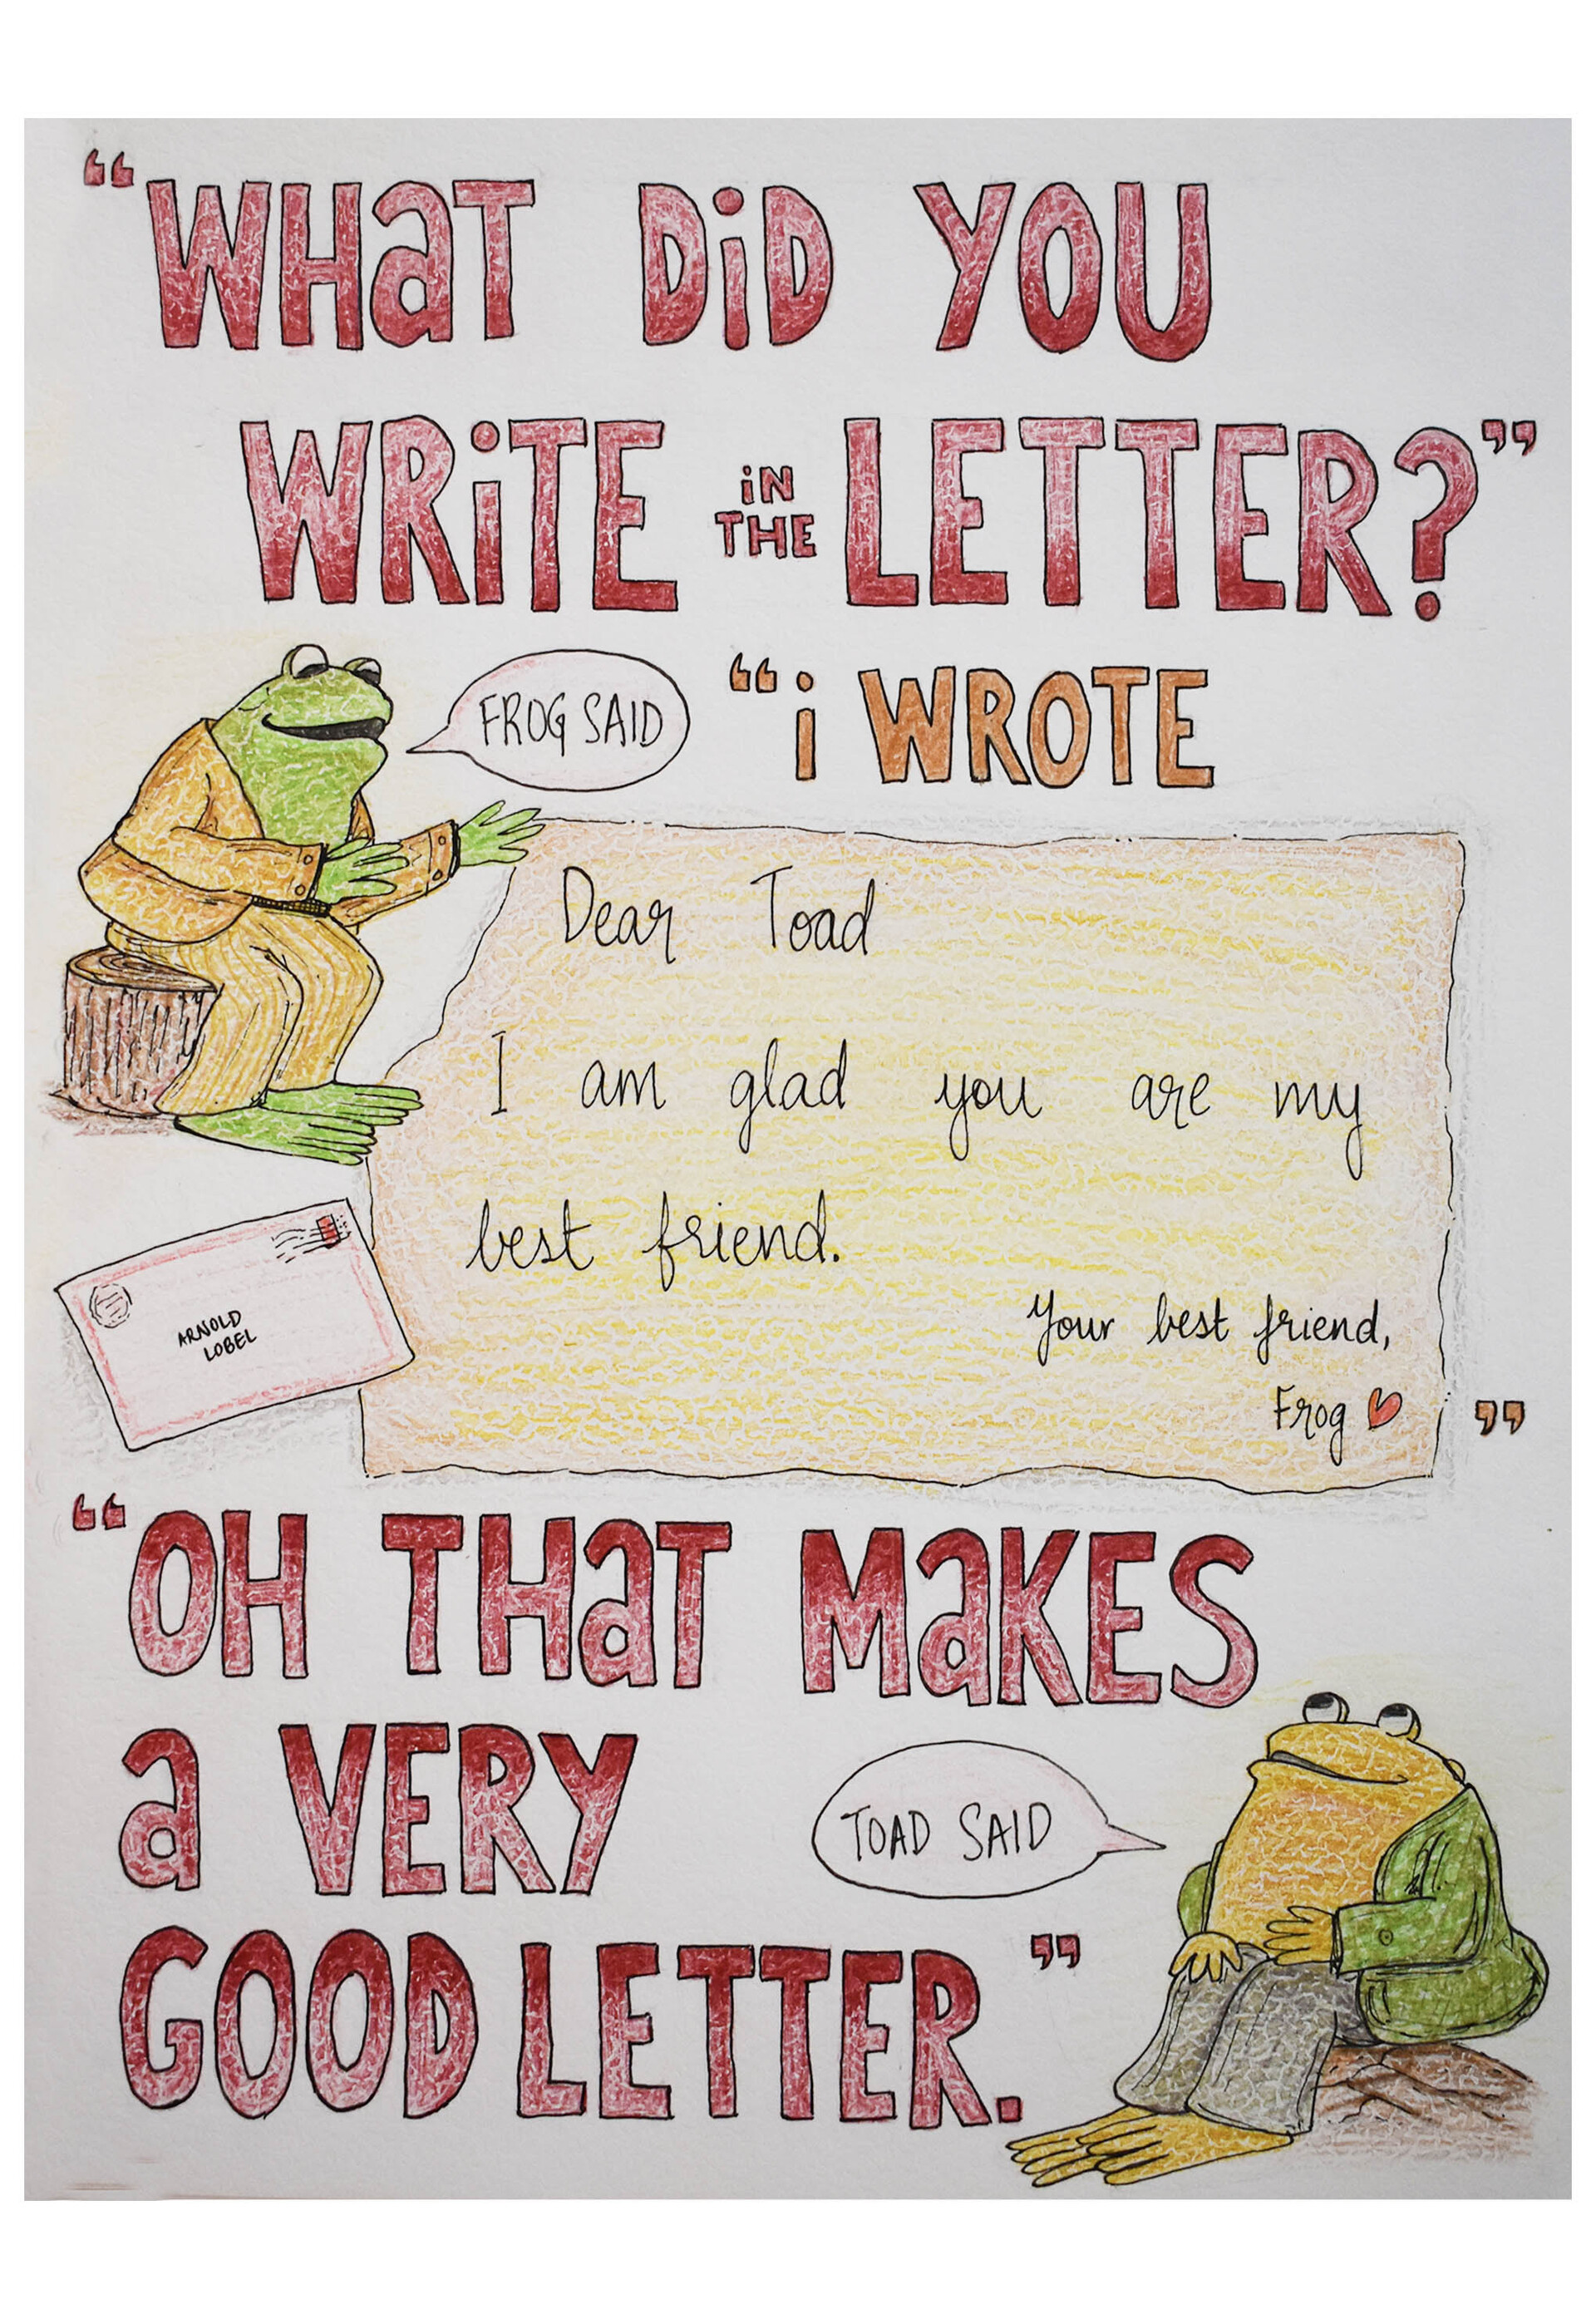 “WHaT DiD YOU
WRiTE iN THE LETTER?”
FROG SAID
“i WROTE
Dear Toad
I am glad you are my
best friend.
Your best friend,
Frog
”
ARNOLD
LOBEL
“OH THaT MaKES
a VERY
TOAD SAID
GOOD LETTER.”